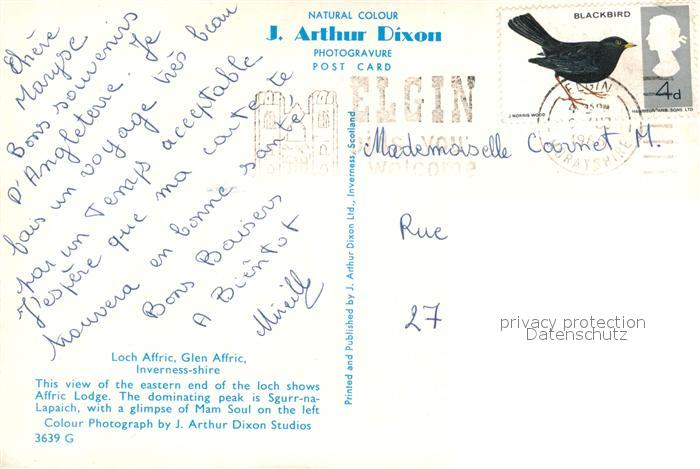 NATURAL COLOUR
J. Arthur Dixon
PHOTOGRAVURE
POST CARD
BLACKBIRD
4d
J NORRIS WOOD
HARRISON AND SONS LTD
ELGIN
ELGIN
welcome
MORAYSHIRE
Chère
Maryse
Bons souvenirs
D'Angleterre. Je
fais un voyage très beau
par un Temps acceptable
J'espère que ma carte te
trouvera en bonne santé
Bons Baisers
A Bientôt
Mireille
Mademoiselle Cornet M.
Rue
27
privacy protection
Datenschutz
Printed and Published by J. Arthur Dixon Ltd., Inverness, Scotland
Loch Affric, Glen Affric,
Inverness-shire
This view of the eastern end of the loch shows
Affric Lodge. The dominating peak is Sgurr-na-
Lapaich, with a glimpse of Mam Soul on the left
Colour Photograph by J. Arthur Dixon Studios
3639 G